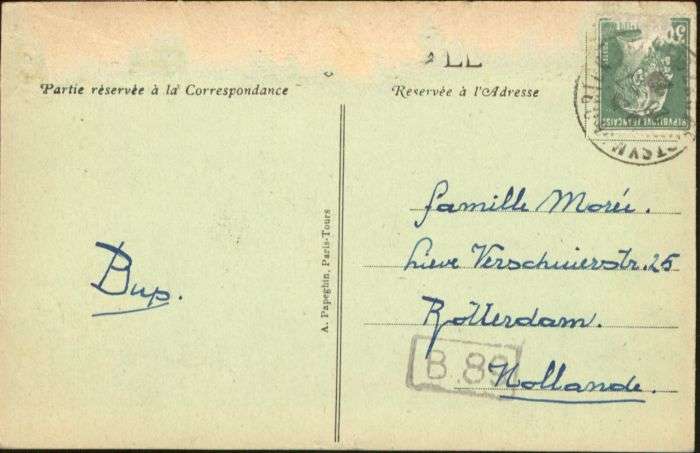 Partie réservée à la Correspondance
Reservée à l'Adresse
RÉPUBLIQUE FRANÇAISE
A. Papeghin, Paris-Tours
Bup.
famille Morée.
Lieve Verschuierstr. 25
Rotterdam.
Hollande.
B 89